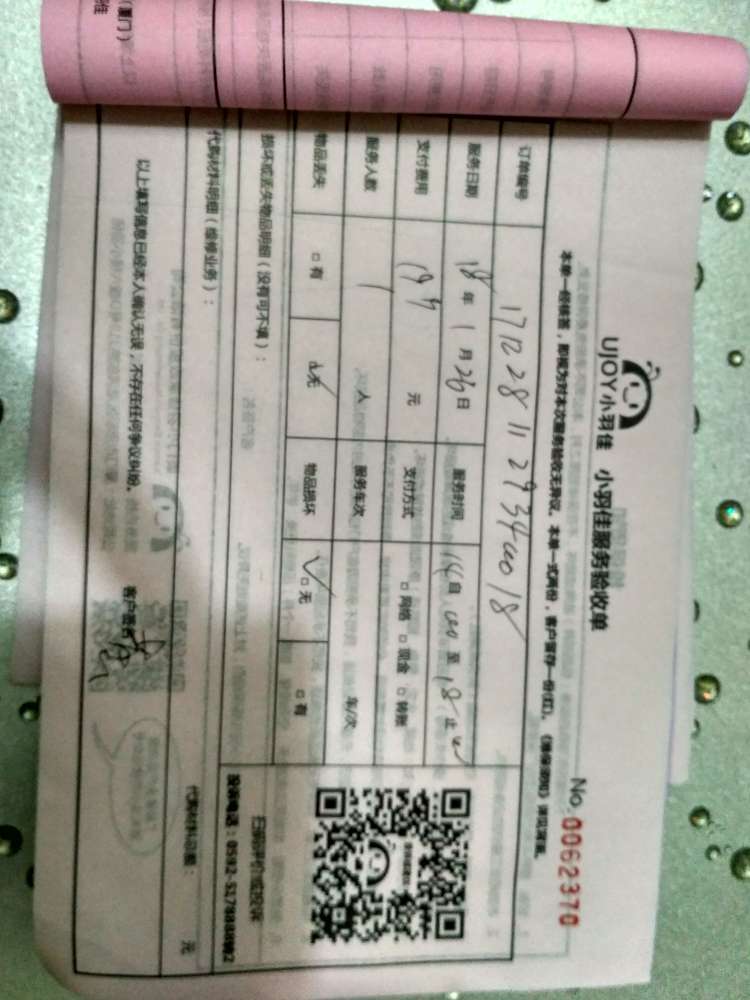 UJOY小羽佳 小羽佳服务验收单
No. 0062370
本单一经核签，即视为对本次服务验收无异议。本单一式两份，客户留存一份(红)。
订单编号 17122811293400018
服务日期 18年1月28日 服务时间 自 至 18 止
支付费用 199 元 支付方式 □网络 □现金 □转账
服务人数 1 人 服务车次 车/次
物品丢失 □有 □无 物品损坏 □无 □有
损坏或丢失物品明细（没有可不填）：
扫码评价或投诉
代购材料明细（维修业务）：
代购材料总额： 元
以上填写信息已经本人确认无误，不存在任何争议纠纷。 客户签名
(厦门)